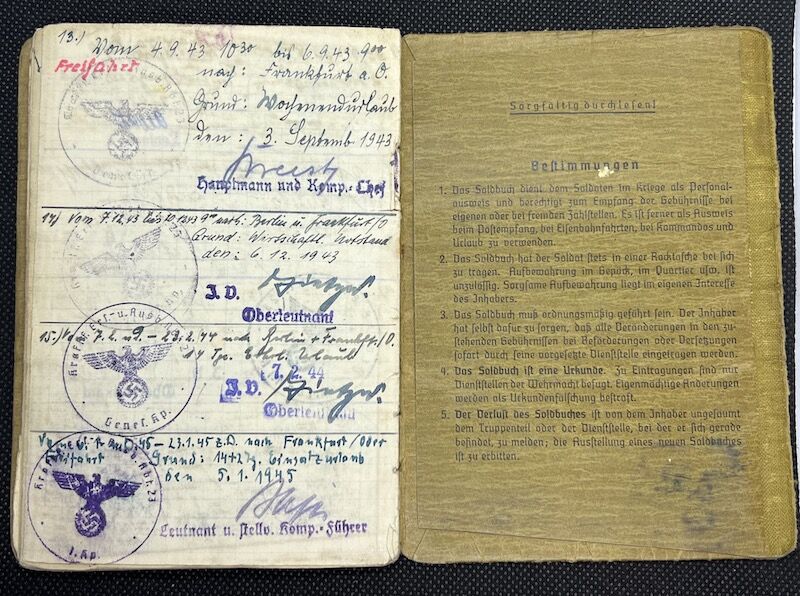 13.) Vom 4.9.43 10³⁰ bis 6.9.43 9⁰⁰
Freifahrt
nach: Frankfurt a. O.
Grund: Wochenendurlaub
den: 3. Septemb. 1943
Hauptmann und Komp.-Chef
Vom 7.12.43 bis 10.12.43 9⁰⁰ nach: Berlin u. Frankfurt/O
Grund: Wirtschaftl. Notstand
den: 6. 12. 1943
I. V.
Oberleutnant
15.) 7.2. 23.2.44 nach Berlin + Frankft./O.
14 Tg. Erhl. Urlaub
7. 2. 44
I. V.
Oberleutnant
Genes. Kp.
45 – 23.1.45 nach Frankfurt/Oder
Freifahrt Grund: 14+2 Tg. Einsatzurlaub
den 5. 1. 1945
Leutnant u. stellv. Komp.-Führer
1. Kp.
Sorgfältig durchlesen!
Bestimmungen
1. Das Soldbuch dient dem Soldaten im Kriege als Personal-
ausweis und berechtigt zum Empfang der Gebührnisse bei
eigenen oder bei fremden Zahlstellen. Es ist ferner als Ausweis
beim Postempfang, bei Eisenbahnfahrten, bei Kommandos und
Urlaub zu verwenden.
2. Das Soldbuch hat der Soldat stets in einer Rocktasche bei sich
zu tragen. Aufbewahrung im Gepäck, im Quartier usw. ist
unzulässig. Sorgsame Aufbewahrung liegt im eigenen Interesse
des Inhabers.
3. Das Soldbuch muß ordnungsmäßig geführt sein. Der Inhaber
hat selbst dafür zu sorgen, daß alle Veränderungen in den zu-
stehenden Gebührnissen bei Beförderungen oder Versetzungen
sofort durch seine vorgesetzte Dienststelle eingetragen werden.
4. Das Soldbuch ist eine Urkunde. Zu Eintragungen sind nur
Dienststellen der Wehrmacht befugt. Eigenmächtige Änderungen
werden als Urkundenfälschung bestraft.
5. Der Verlust des Soldbuches ist von dem Inhaber ungesäumt
dem Truppenteil oder der Dienststelle, bei der er sich gerade
befindet, zu melden; die Ausstellung eines neuen Soldbuches ist
zu erbitten.